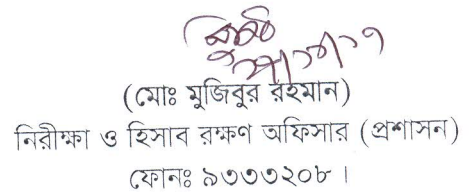 (মোঃ মুজিবুর রহমান)
নিরীক্ষা ও হিসাব রক্ষণ অফিসার (প্রশাসন)
ফোনঃ ৯৩৩৩২০৮ ।